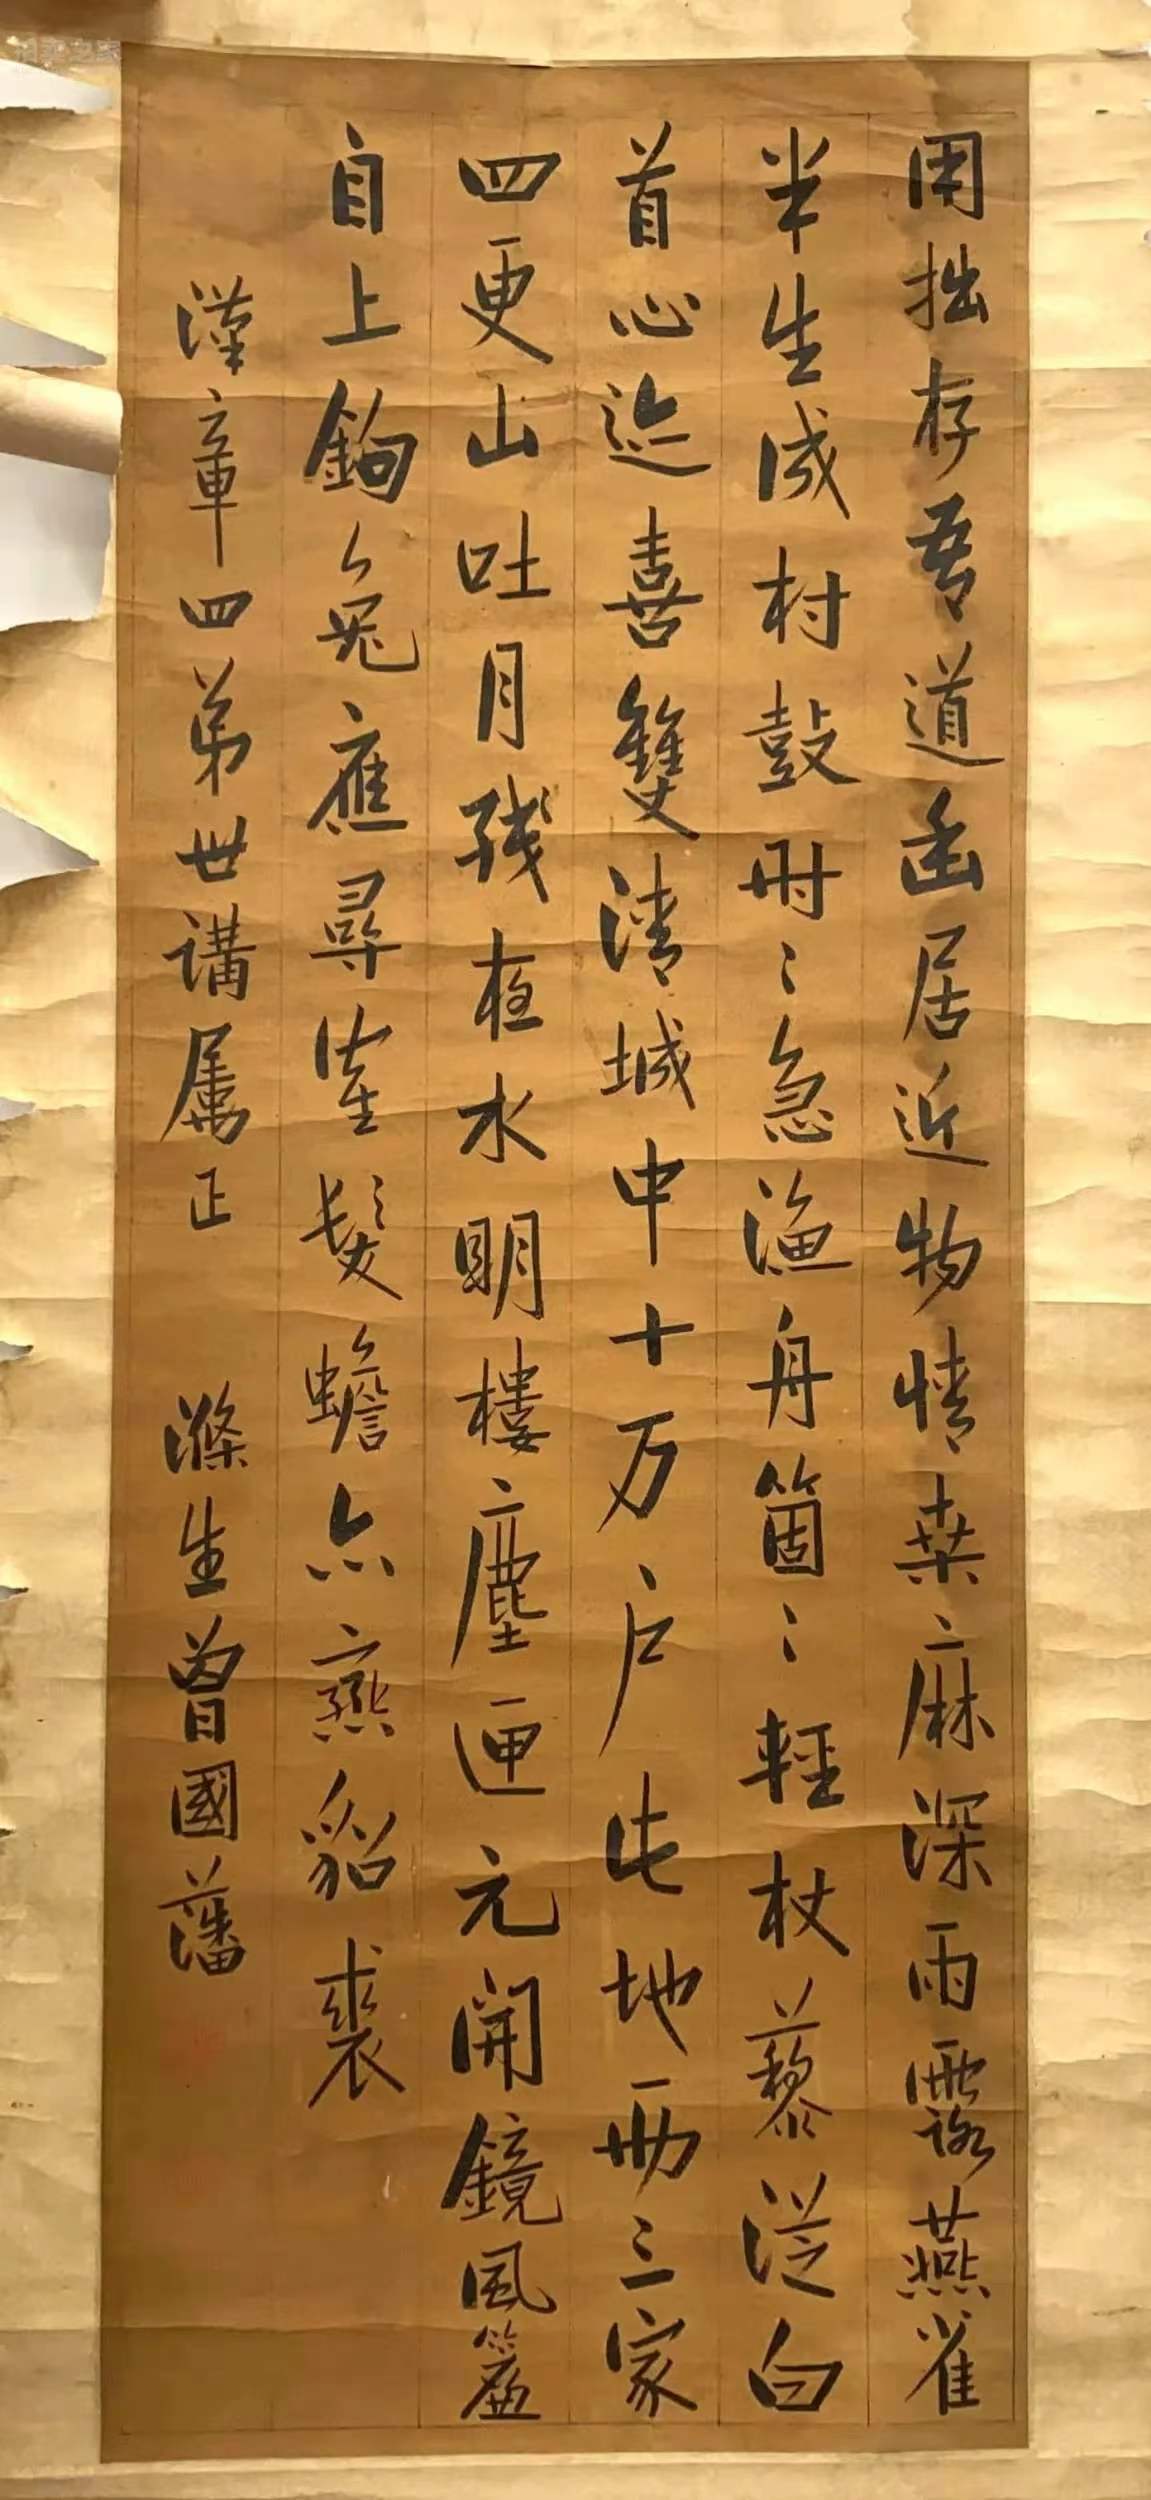 用拙存吾道幽居近物情桑麻深雨露燕雀
半生成村鼓時〻急漁舟箇〻輕杖藜從白
首心迹喜雙清城中十万户此地兩三家
四更山吐月殘夜水明樓塵匣元開鏡風簾
自上鉤兔應尋寉髮蟾亦戀貂裘
漢章四弟世講屬正 滌生曾國藩